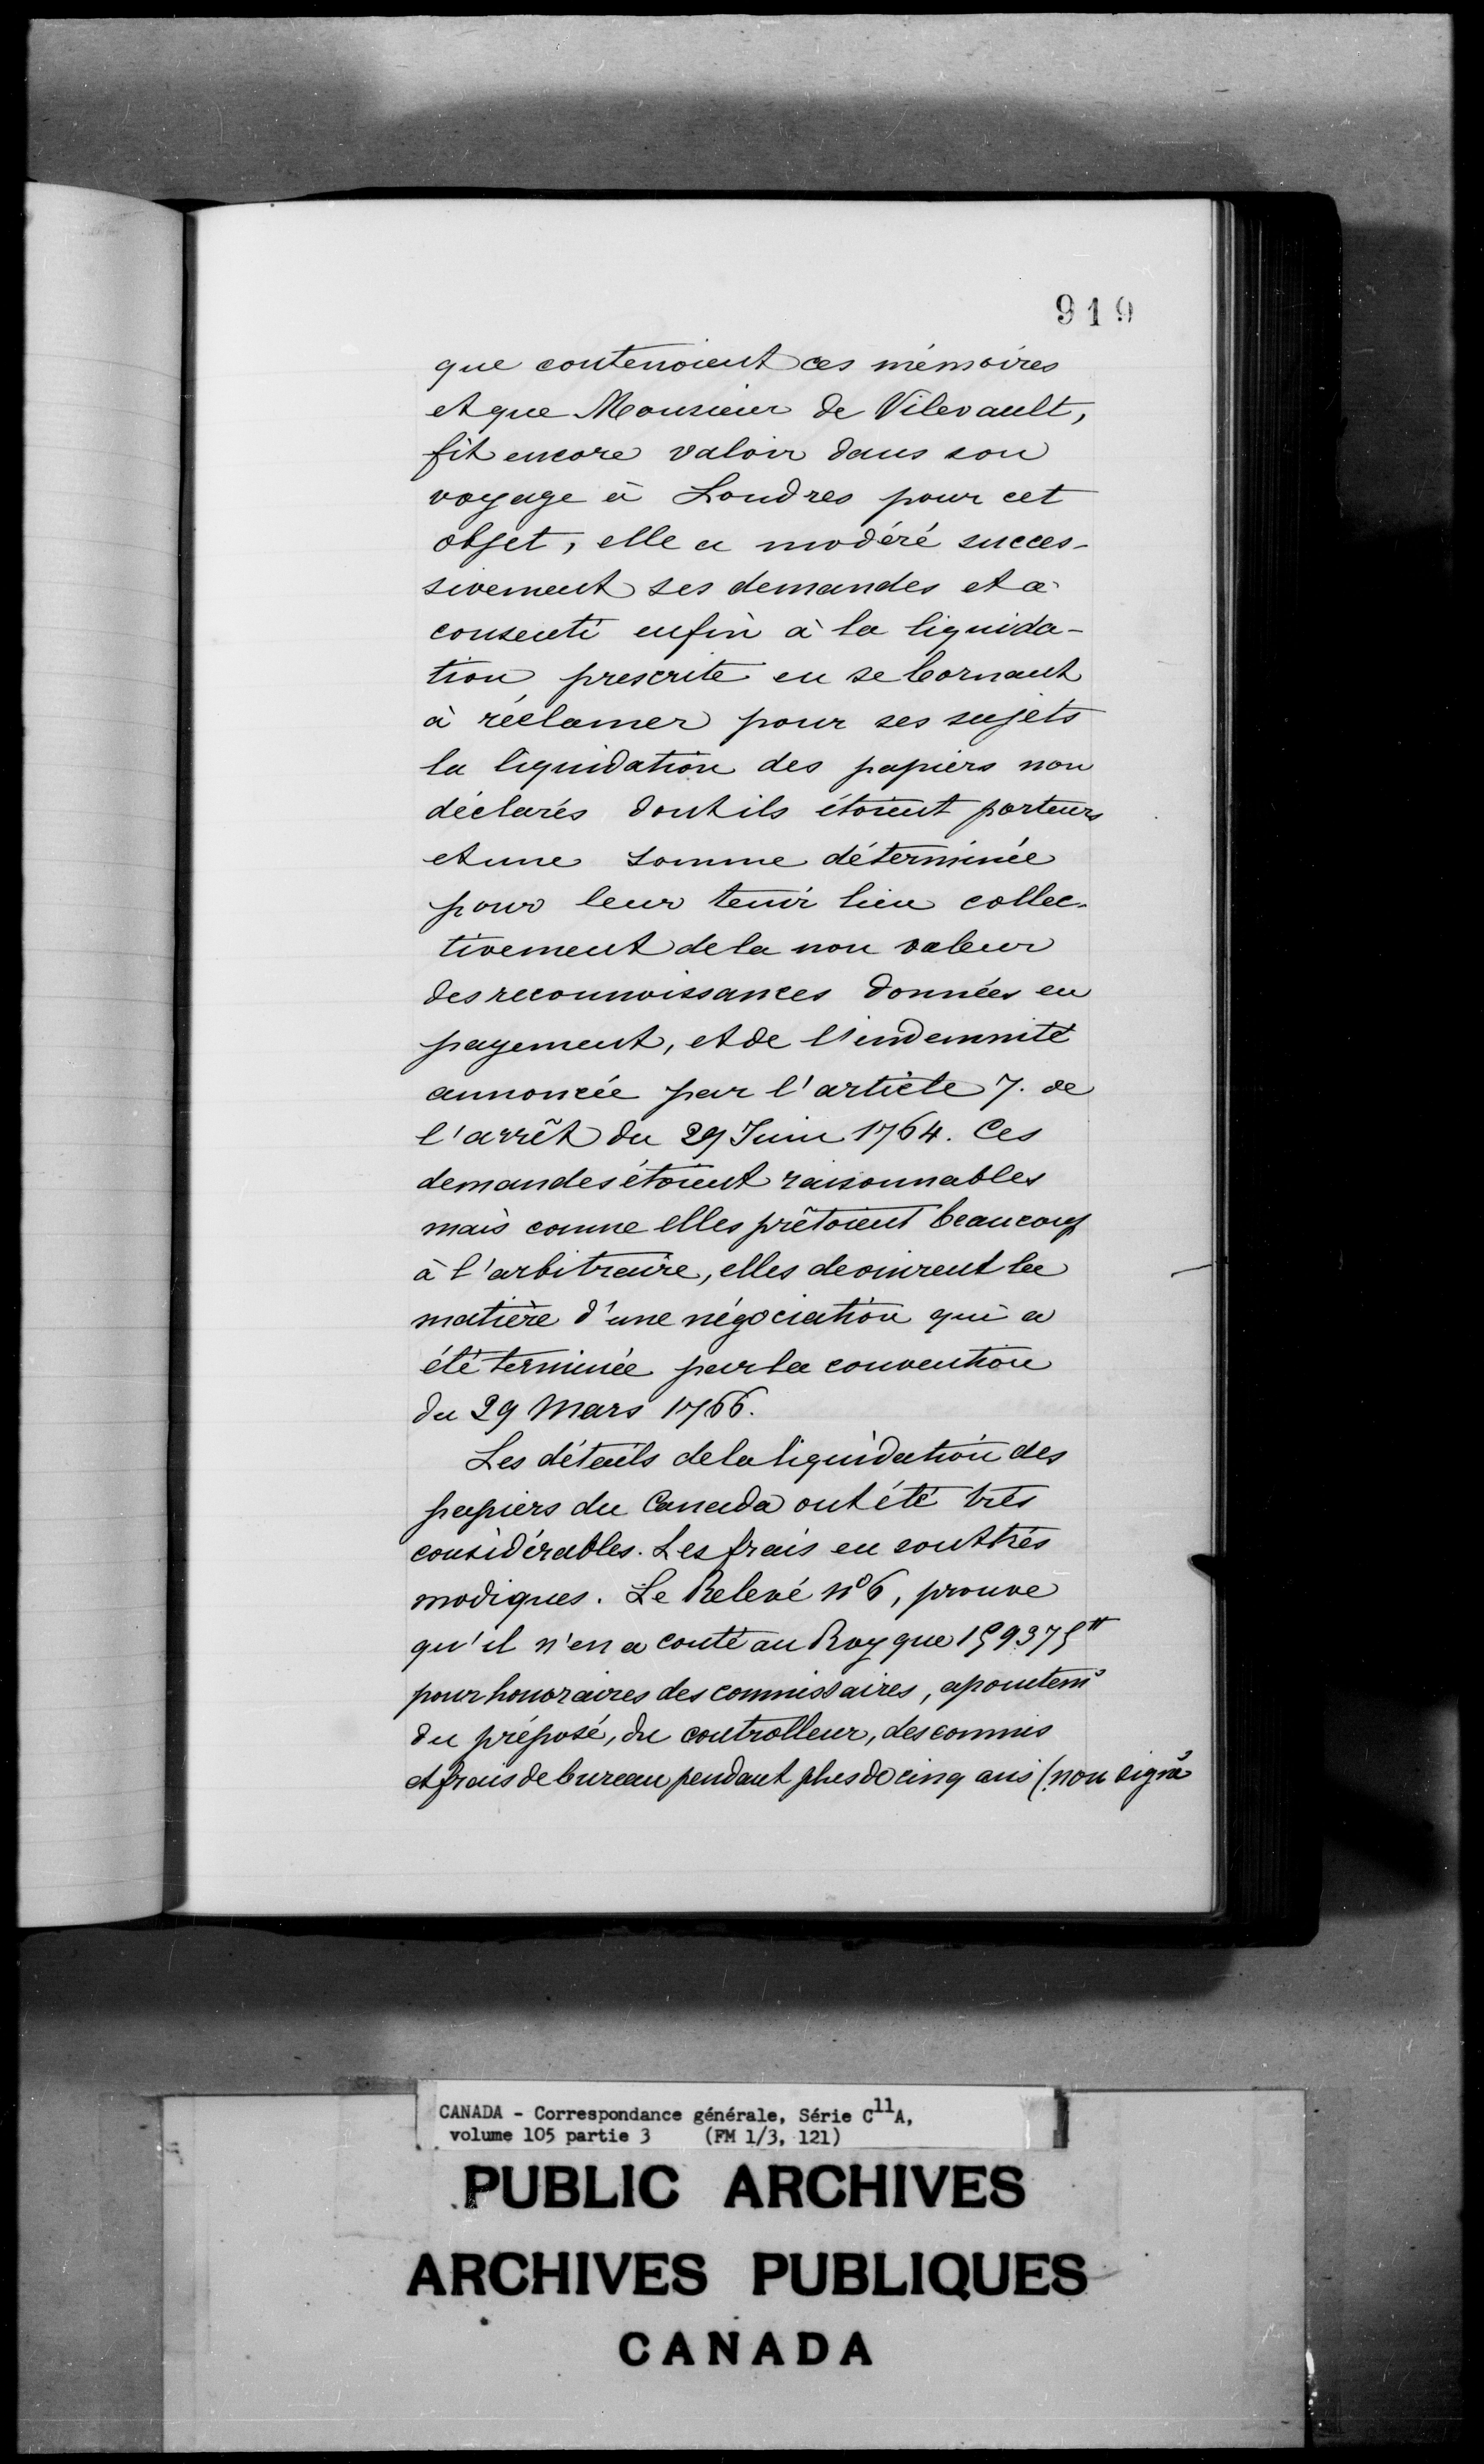 919
que contenoient ces mémoires
et que Monsieur de Vilevault,
fit encore valoir dans son
voyage à Londres pour cet
objet, elle a modéré succes-
sivement ses demandes et a
consenti enfin à la liquida-
tion prescrite en se bornant
à réclamer pour ses sujets
la liquidation des papiers non
déclarés dont ils étoient porteurs
et une somme déterminée
pour leur tenir lieu collec-
tivement de la non valeur
des reconnoissances données en
payement, et de l'indemnité
annoncée par l'article 7. de
l'arrêt du 29 Juin 1764. Ces
demandes étoient raisonnables
mais comme elles prêtoient beaucoup
à l'arbitraire, elles devinrent la
matière d'une négociation qui a
été terminée par la convention
du 29 Mars 1766.
Les détails de la liquidation des
papiers du Canada ont été très
considérables. Les frais en sont très
modiques. Le Relevé nº 6, prouve
qu'il n'en a couté au Roy que 159375ᵗᵗ
pour honoraires des commissaires, apointemˢ
du préposé, du controlleur, des commis
et frais de bureau pendant plus de cinq ans (non signé
CANADA - Correspondance générale, Série C¹¹A,
volume 105 partie 3 (FM 1/3, 121)
PUBLIC ARCHIVES
ARCHIVES PUBLIQUES
CANADA